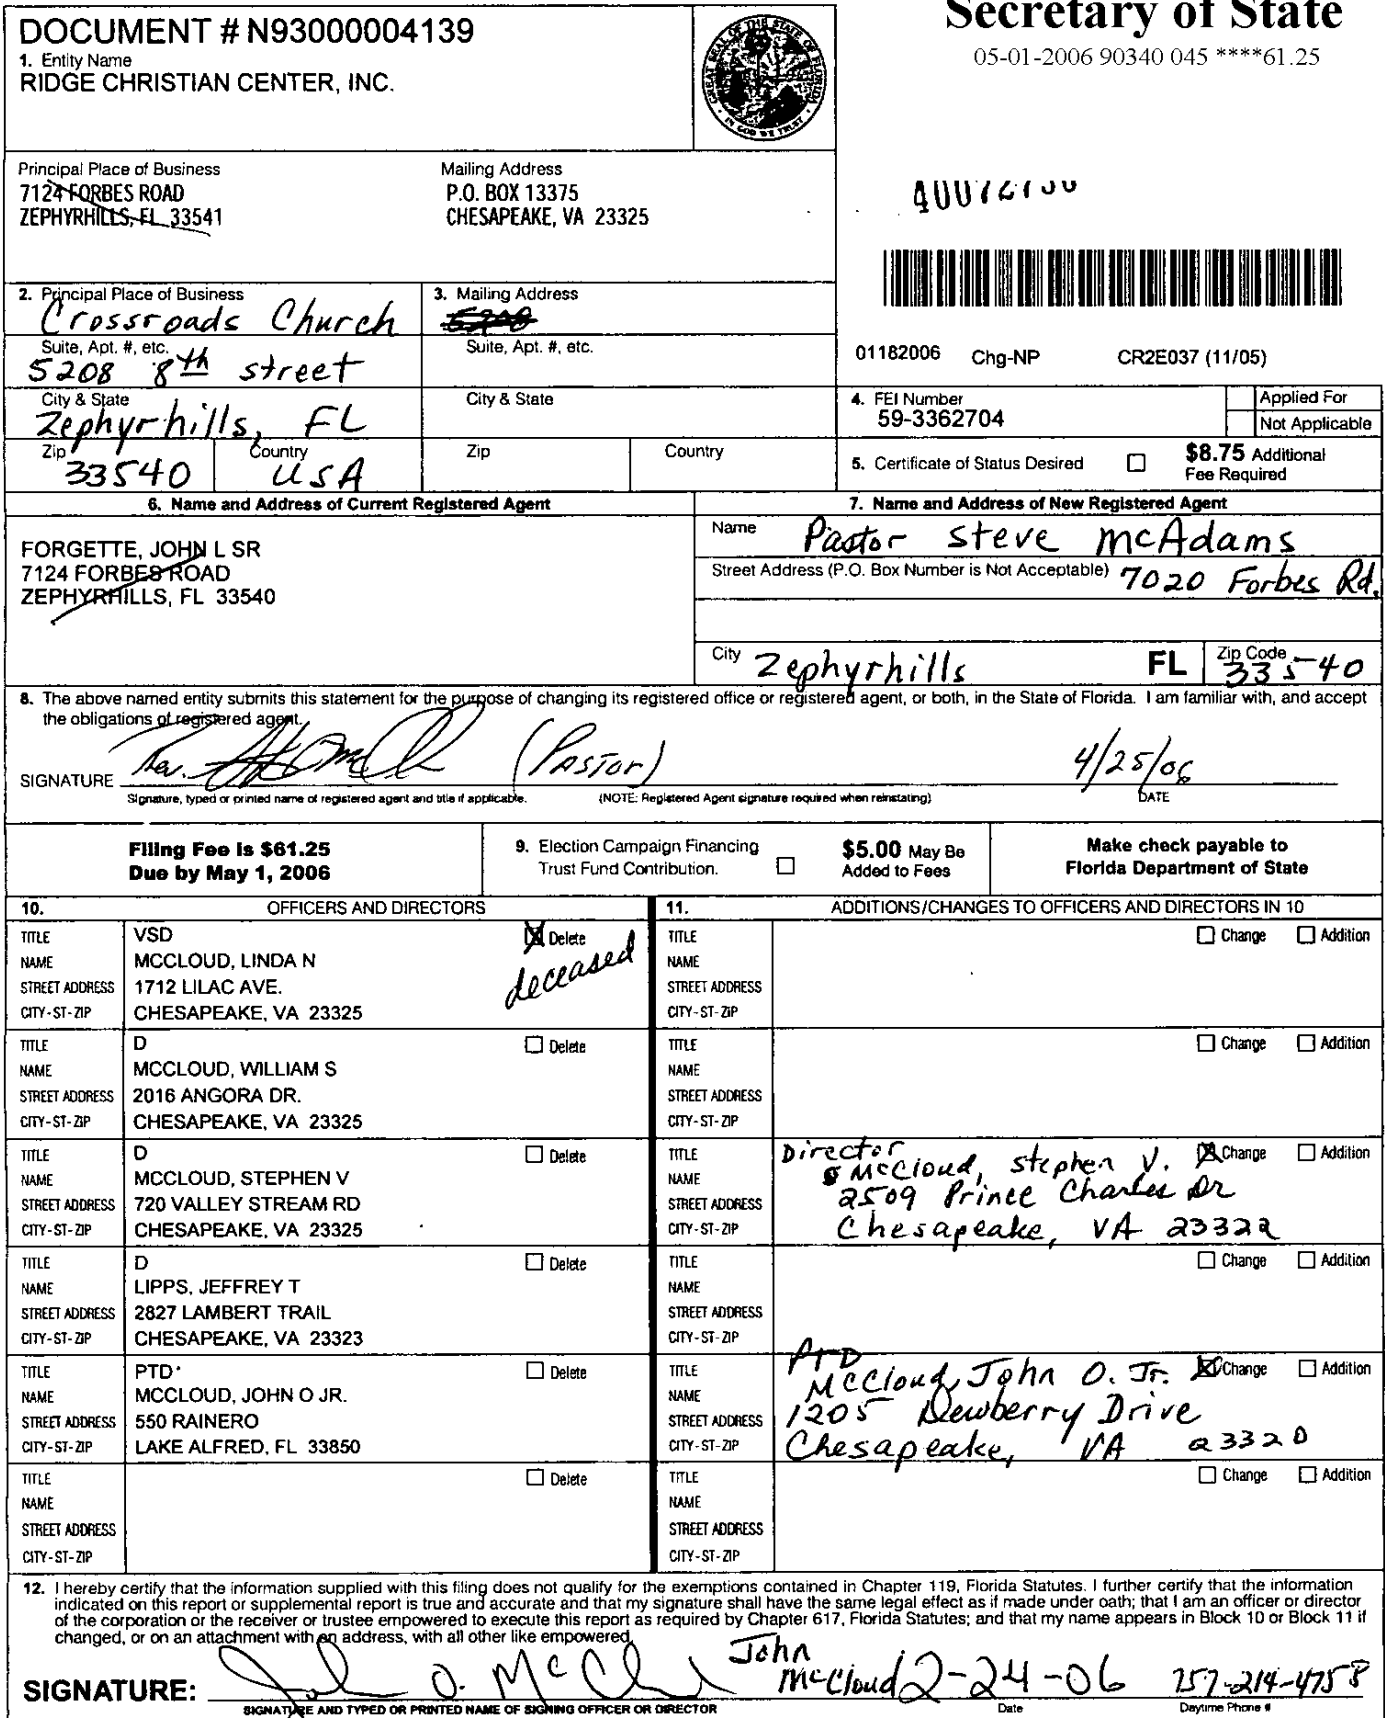 Secretary of State
05-01-2006 90340 045 ****61.25
DOCUMENT # N93000004139
1. Entity Name
RIDGE CHRISTIAN CENTER, INC.
Principal Place of Business
7124 FORBES ROAD
ZEPHYRHILLS, FL 33541
Mailing Address
P.O. BOX 13375
CHESAPEAKE, VA 23325
2. Principal Place of Business
Crossroads Church
Suite, Apt. #, etc.
5208 8th street
City & State
Zephyrhills, FL
Zip
33540
Country
USA
3. Mailing Address
5208
Suite, Apt. #, etc.
City & State
Zip
Country
01182006 Chg-NP CR2E037 (11/05)
4. FEI Number
59-3362704
Applied For
Not Applicable
5. Certificate of Status Desired
$8.75 Additional
Fee Required
6. Name and Address of Current Registered Agent
FORGETTE, JOHN L SR
7124 FORBES ROAD
ZEPHYRHILLS, FL 33540
7. Name and Address of New Registered Agent
Name Pastor Steve McAdams
Street Address (P.O. Box Number is Not Acceptable) 7020 Forbes Rd.
City Zephyrhills FL Zip Code 33540
8. The above named entity submits this statement for the purpose of changing its registered office or registered agent, or both, in the State of Florida. I am familiar with, and accept
the obligations of registered agent.
SIGNATURE Rev. (Pastor) 4/25/06
Signature, typed or printed name of registered agent and title if applicable. (NOTE: Registered Agent signature required when reinstating) DATE
Filing Fee is $61.25
Due by May 1, 2006
9. Election Campaign Financing
Trust Fund Contribution.
$5.00 May Be
Added to Fees
Make check payable to
Florida Department of State
10. OFFICERS AND DIRECTORS
11. ADDITIONS/CHANGES TO OFFICERS AND DIRECTORS IN 10
TITLE VSD X Delete
NAME MCCLOUD, LINDA N deceased
STREET ADDRESS 1712 LILAC AVE.
CITY-ST-ZIP CHESAPEAKE, VA 23325
TITLE Change Addition
NAME
STREET ADDRESS
CITY-ST-ZIP
TITLE D Delete
NAME MCCLOUD, WILLIAM S
STREET ADDRESS 2016 ANGORA DR.
CITY-ST-ZIP CHESAPEAKE, VA 23325
TITLE Change Addition
NAME
STREET ADDRESS
CITY-ST-ZIP
TITLE D Delete
NAME MCCLOUD, STEPHEN V
STREET ADDRESS 720 VALLEY STREAM RD
CITY-ST-ZIP CHESAPEAKE, VA 23325
TITLE Director X Change Addition
NAME McCloud, Stephen V.
STREET ADDRESS 2509 Prince Charles Dr
CITY-ST-ZIP Chesapeake, VA 23322
TITLE D Delete
NAME LIPPS, JEFFREY T
STREET ADDRESS 2827 LAMBERT TRAIL
CITY-ST-ZIP CHESAPEAKE, VA 23323
TITLE Change Addition
NAME
STREET ADDRESS
CITY-ST-ZIP
TITLE PTD Delete
NAME MCCLOUD, JOHN O JR.
STREET ADDRESS 550 RAINERO
CITY-ST-ZIP LAKE ALFRED, FL 33850
TITLE PTD X Change Addition
NAME McCloud, John O. Jr.
STREET ADDRESS 1205 Dewberry Drive
CITY-ST-ZIP Chesapeake, VA 23320
TITLE Delete
NAME
STREET ADDRESS
CITY-ST-ZIP
TITLE Change Addition
NAME
STREET ADDRESS
CITY-ST-ZIP
12. I hereby certify that the information supplied with this filing does not qualify for the exemptions contained in Chapter 119, Florida Statutes. I further certify that the information
indicated on this report or supplemental report is true and accurate and that my signature shall have the same legal effect as if made under oath; that I am an officer or director
of the corporation or the receiver or trustee empowered to execute this report as required by Chapter 617, Florida Statutes; and that my name appears in Block 10 or Block 11 if
changed, or on an attachment with an address, with all other like empowered.
SIGNATURE: John O. McCloud John McCloud 2-24-06 757-214-4758
SIGNATURE AND TYPED OR PRINTED NAME OF SIGNING OFFICER OR DIRECTOR Date Daytime Phone #